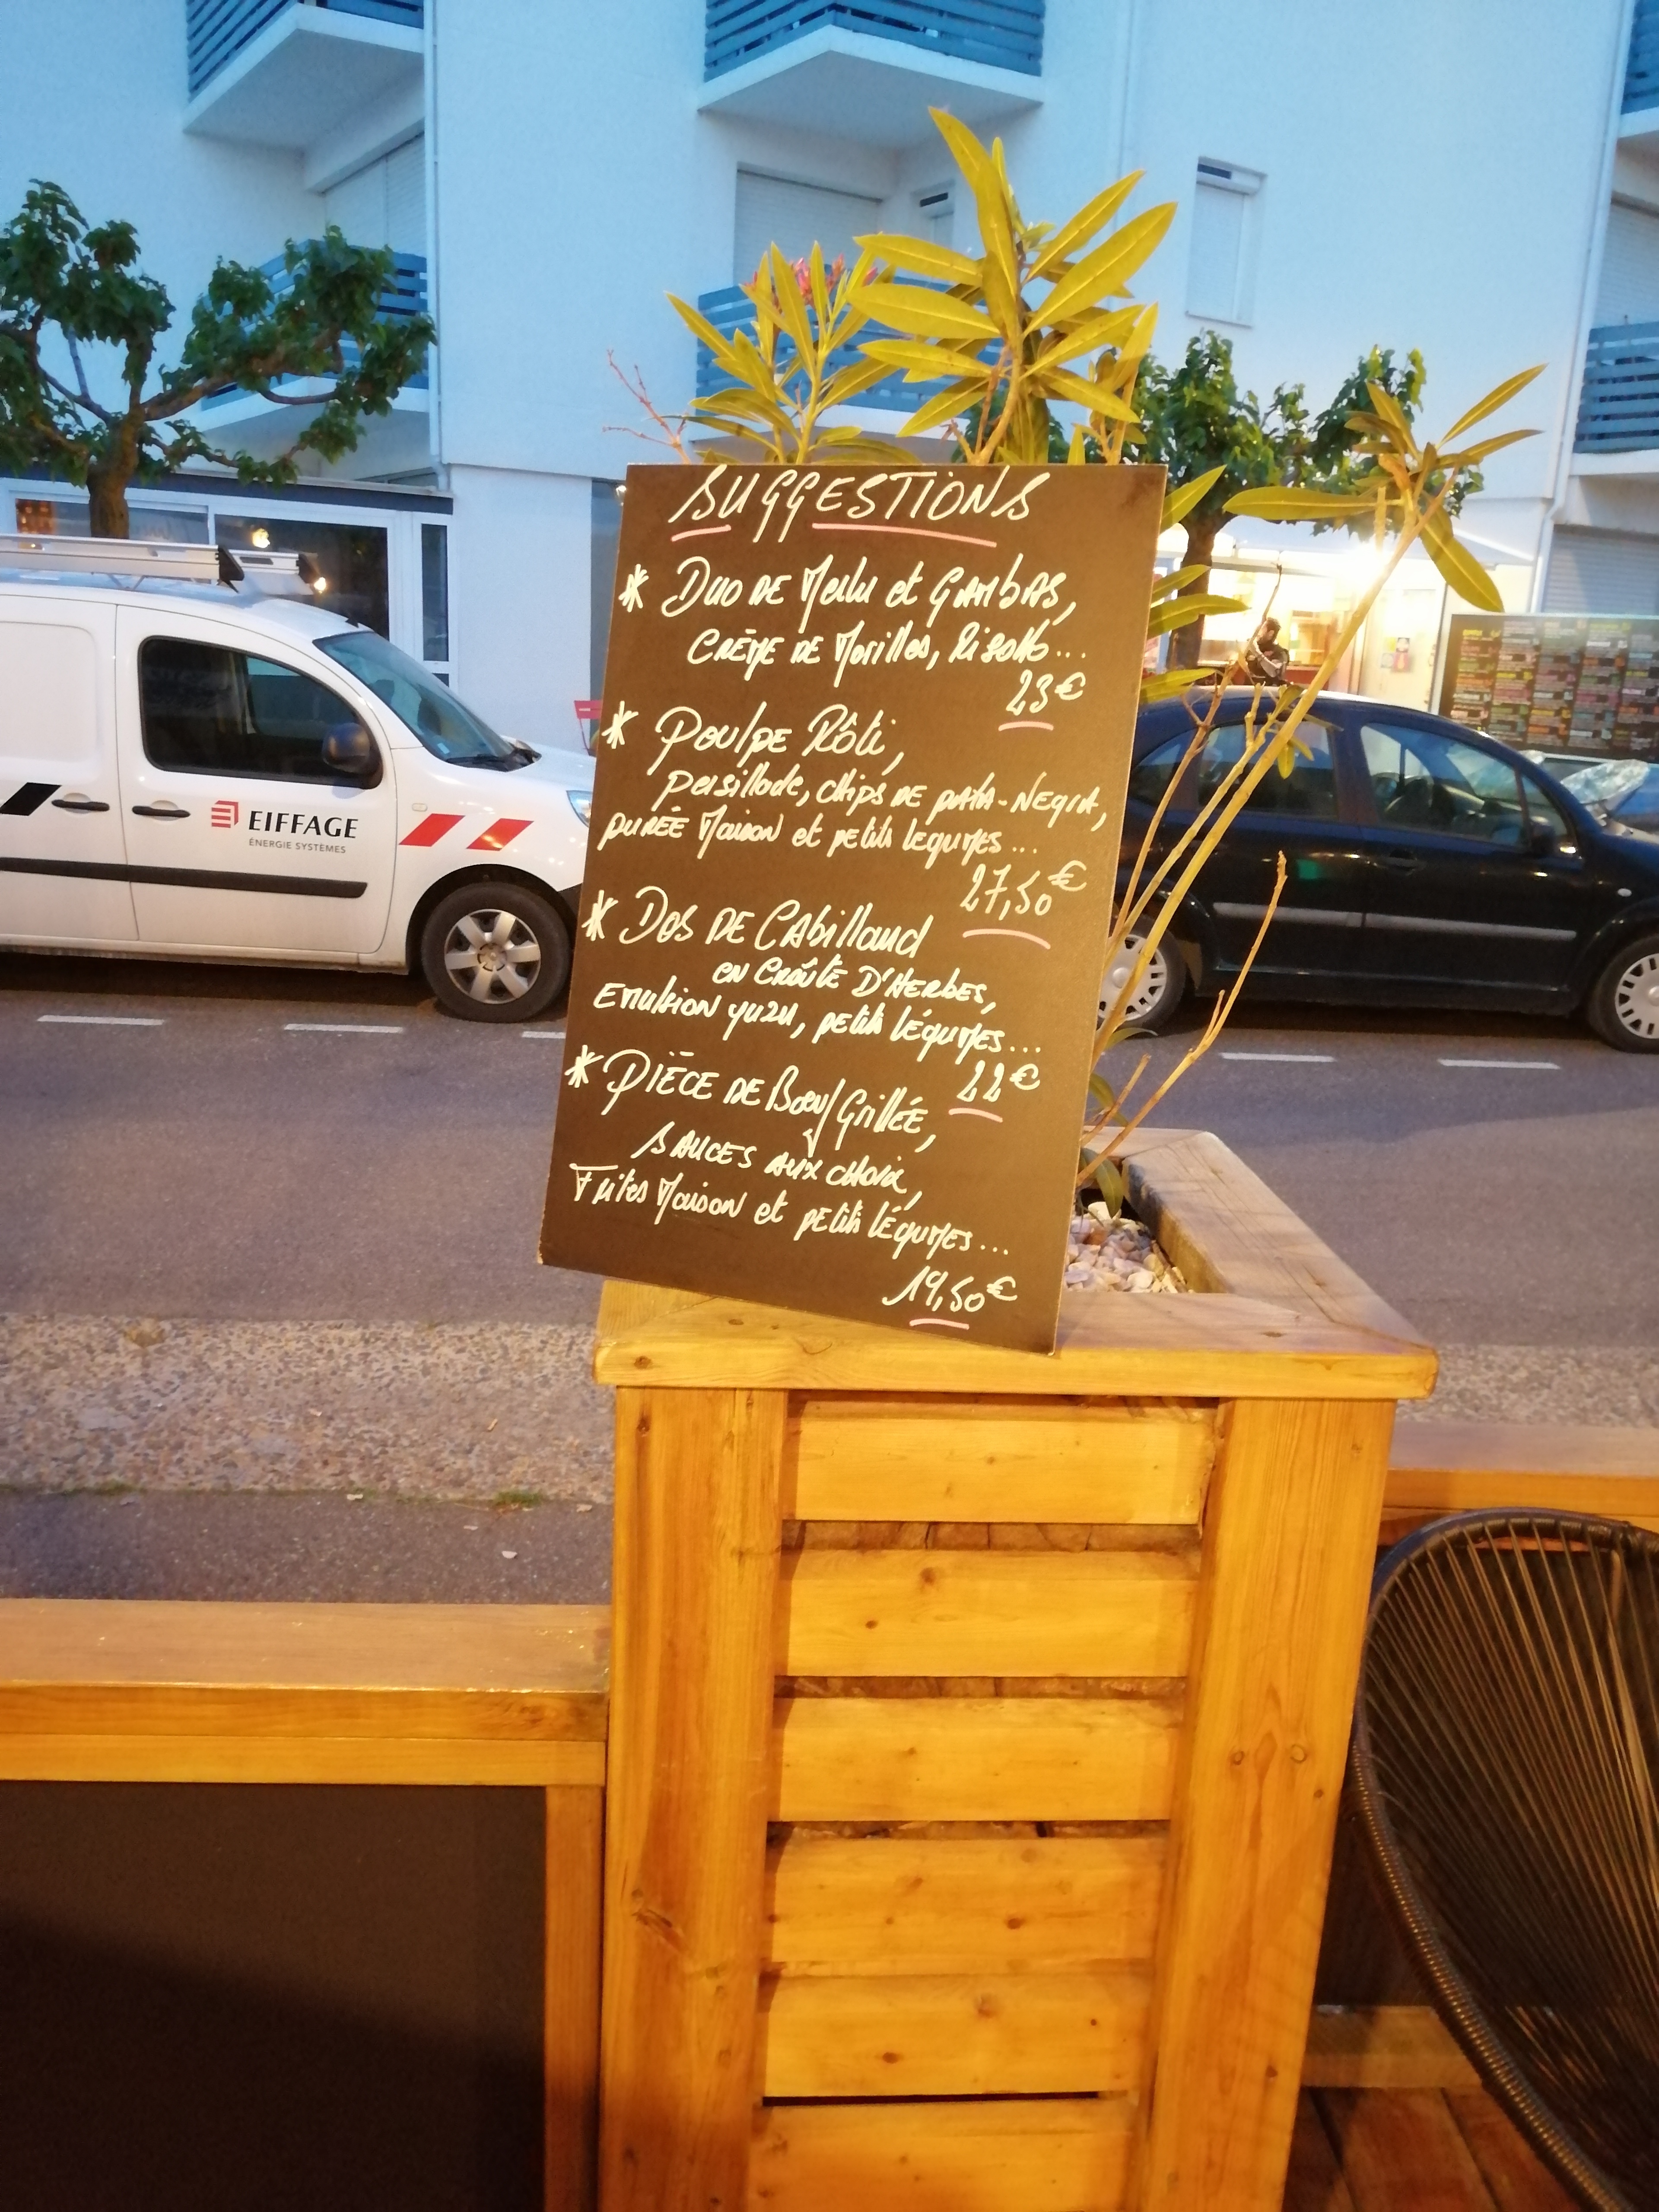 SUGGESTIONS
* Duo de Merlu et Gambas,
Crème de Morilles, Risotto...
23€
* Poulpe Rôti,
persillade, chips de pata-negra,
purée Maison et petits légumes...
27,50€
* Dos de Cabillaud
en croûte d'Herbes,
Emulsion yuzu, petits légumes...
22€
* Pièce de Bœuf Grillée,
sauces aux choix,
Frites Maison et petits légumes...
19,50€
EIFFAGE
ÉNERGIE SYSTÈMES